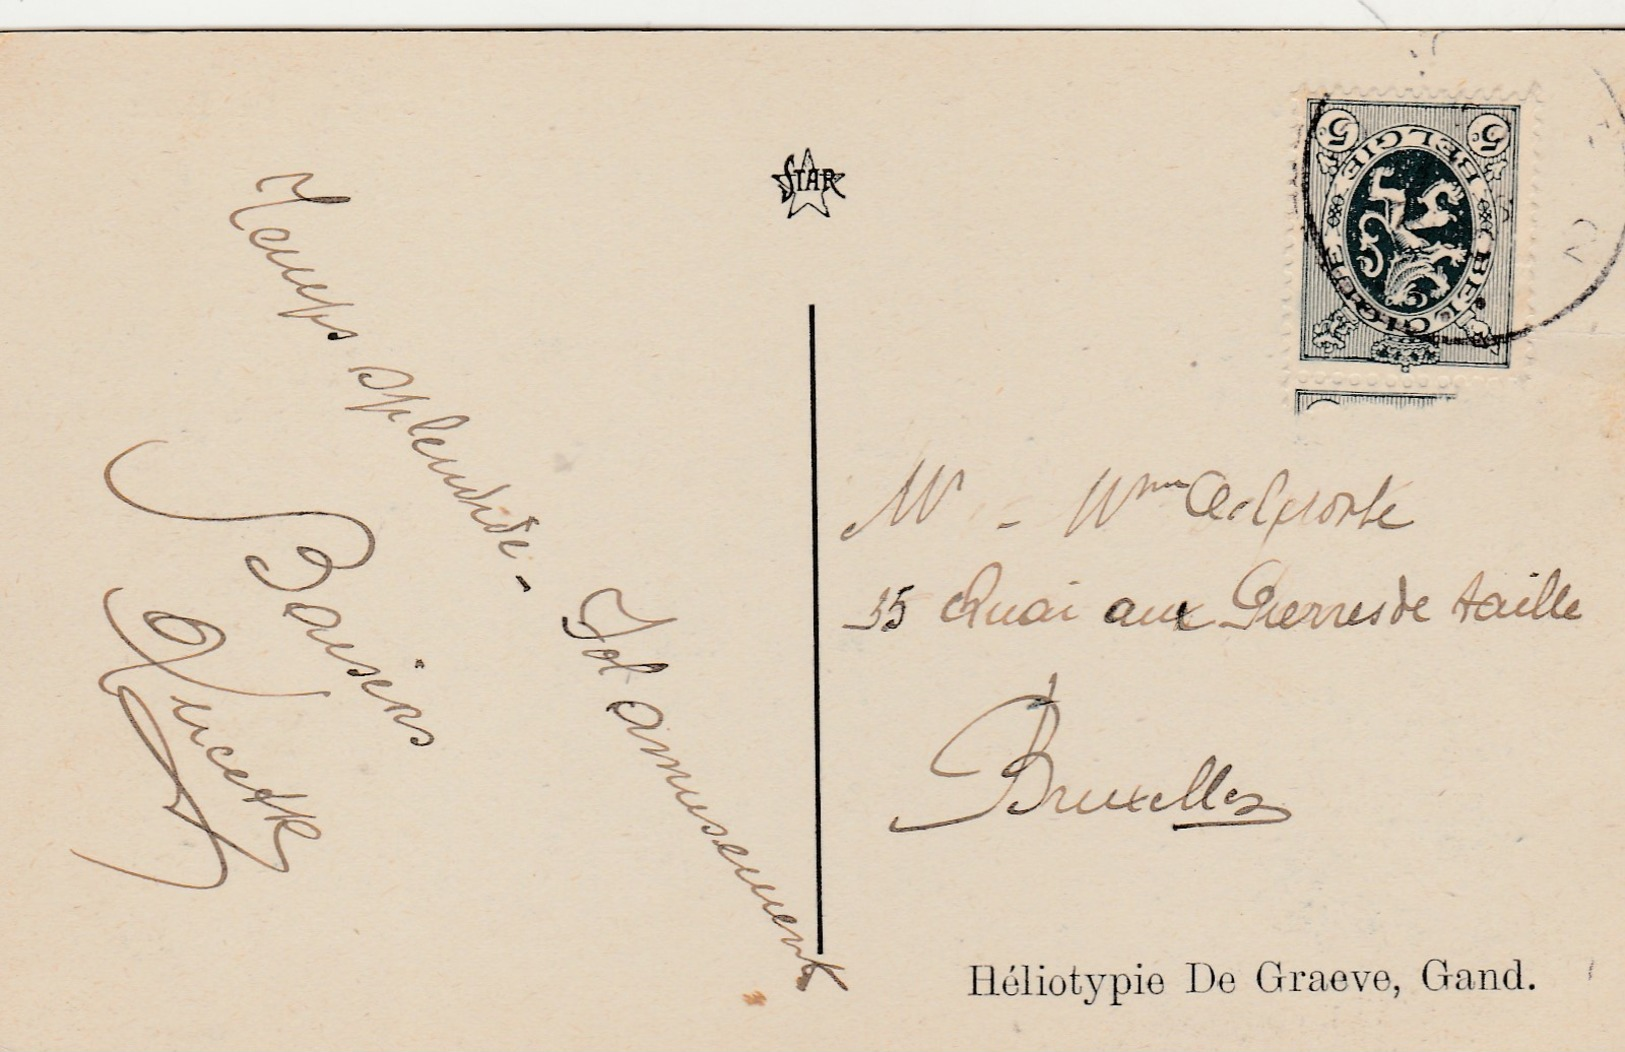 Temps splendide -
Fol amusement
Baisers
Lucette
STAR
5c BELGIE 5c
BELGIQUE
Mr - Mme Delporte
35 Quai aux Pierres de taille
Bruxelles
Héliotypie De Graeve, Gand.